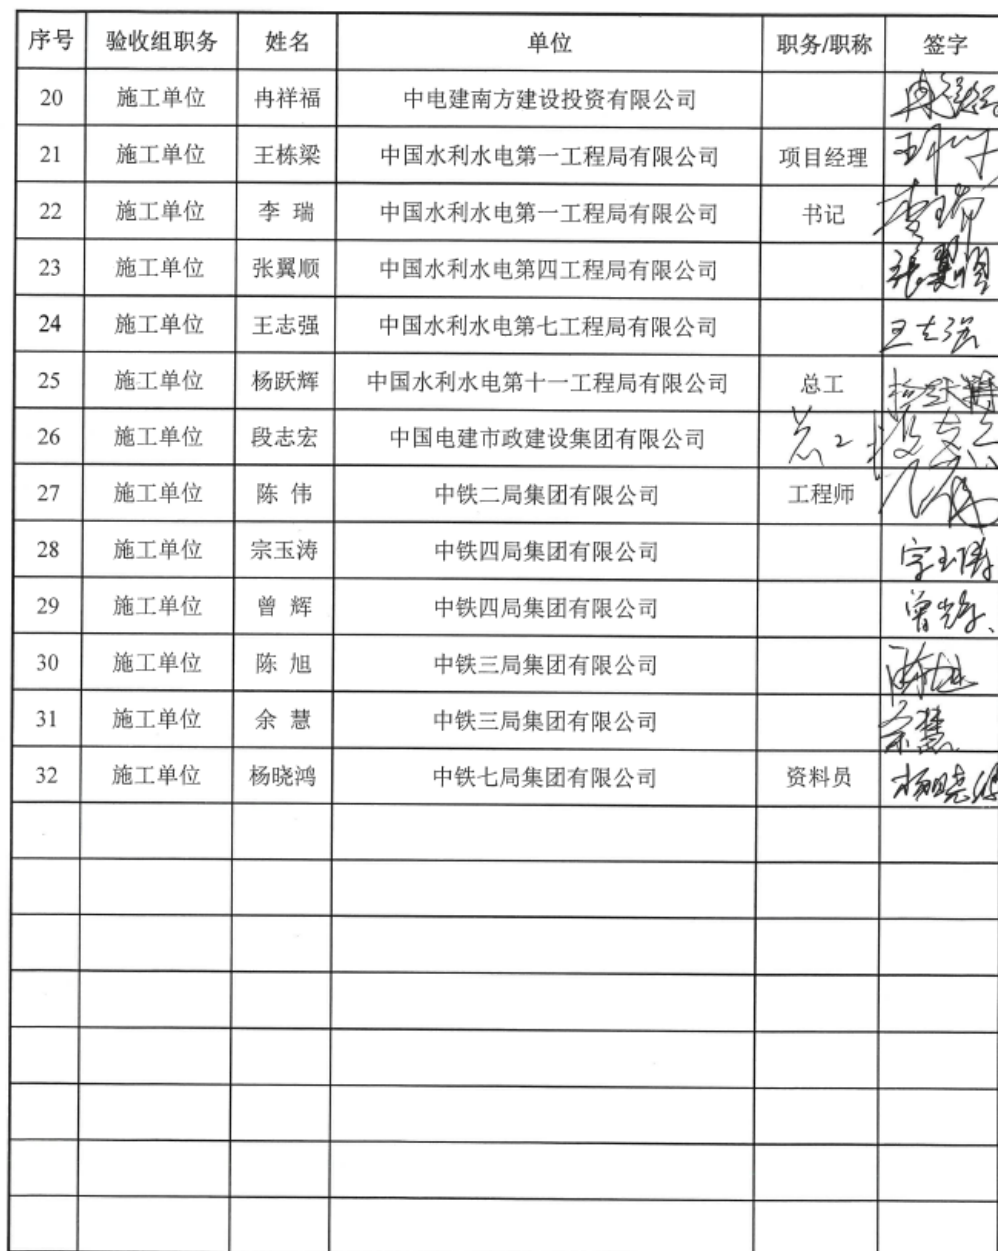 序号 验收组职务 姓名 单位 职务/职称 签字
20 施工单位 冉祥福 中电建南方建设投资有限公司
21 施工单位 王栋梁 中国水利水电第一工程局有限公司 项目经理
22 施工单位 李 瑞 中国水利水电第一工程局有限公司 书记 李瑞
23 施工单位 张翼顺 中国水利水电第四工程局有限公司 张翼顺
24 施工单位 王志强 中国水利水电第七工程局有限公司 王志强
25 施工单位 杨跃辉 中国水利水电第十一工程局有限公司 总工 杨跃辉
26 施工单位 段志宏 中国电建市政建设集团有限公司 总工
27 施工单位 陈 伟 中铁二局集团有限公司 工程师
28 施工单位 宗玉涛 中铁四局集团有限公司 宗玉涛
29 施工单位 曾 辉 中铁四局集团有限公司 曾辉
30 施工单位 陈 旭 中铁三局集团有限公司 陈旭
31 施工单位 余 慧 中铁三局集团有限公司 余慧
32 施工单位 杨晓鸿 中铁七局集团有限公司 资料员 杨晓鸿